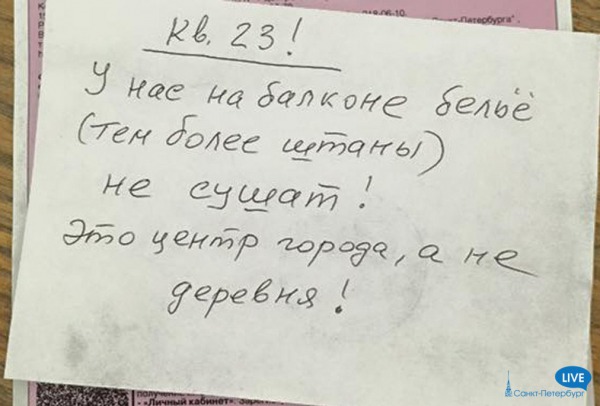 218-06-10.
Санкт-Петербурга".
Кв. 23!
У нас на балконе бельё
(тем более штаны)
не сушат!
Это центр города, а не
деревня!
LIVE
Санкт-Петербург
- «Личный кабинет».